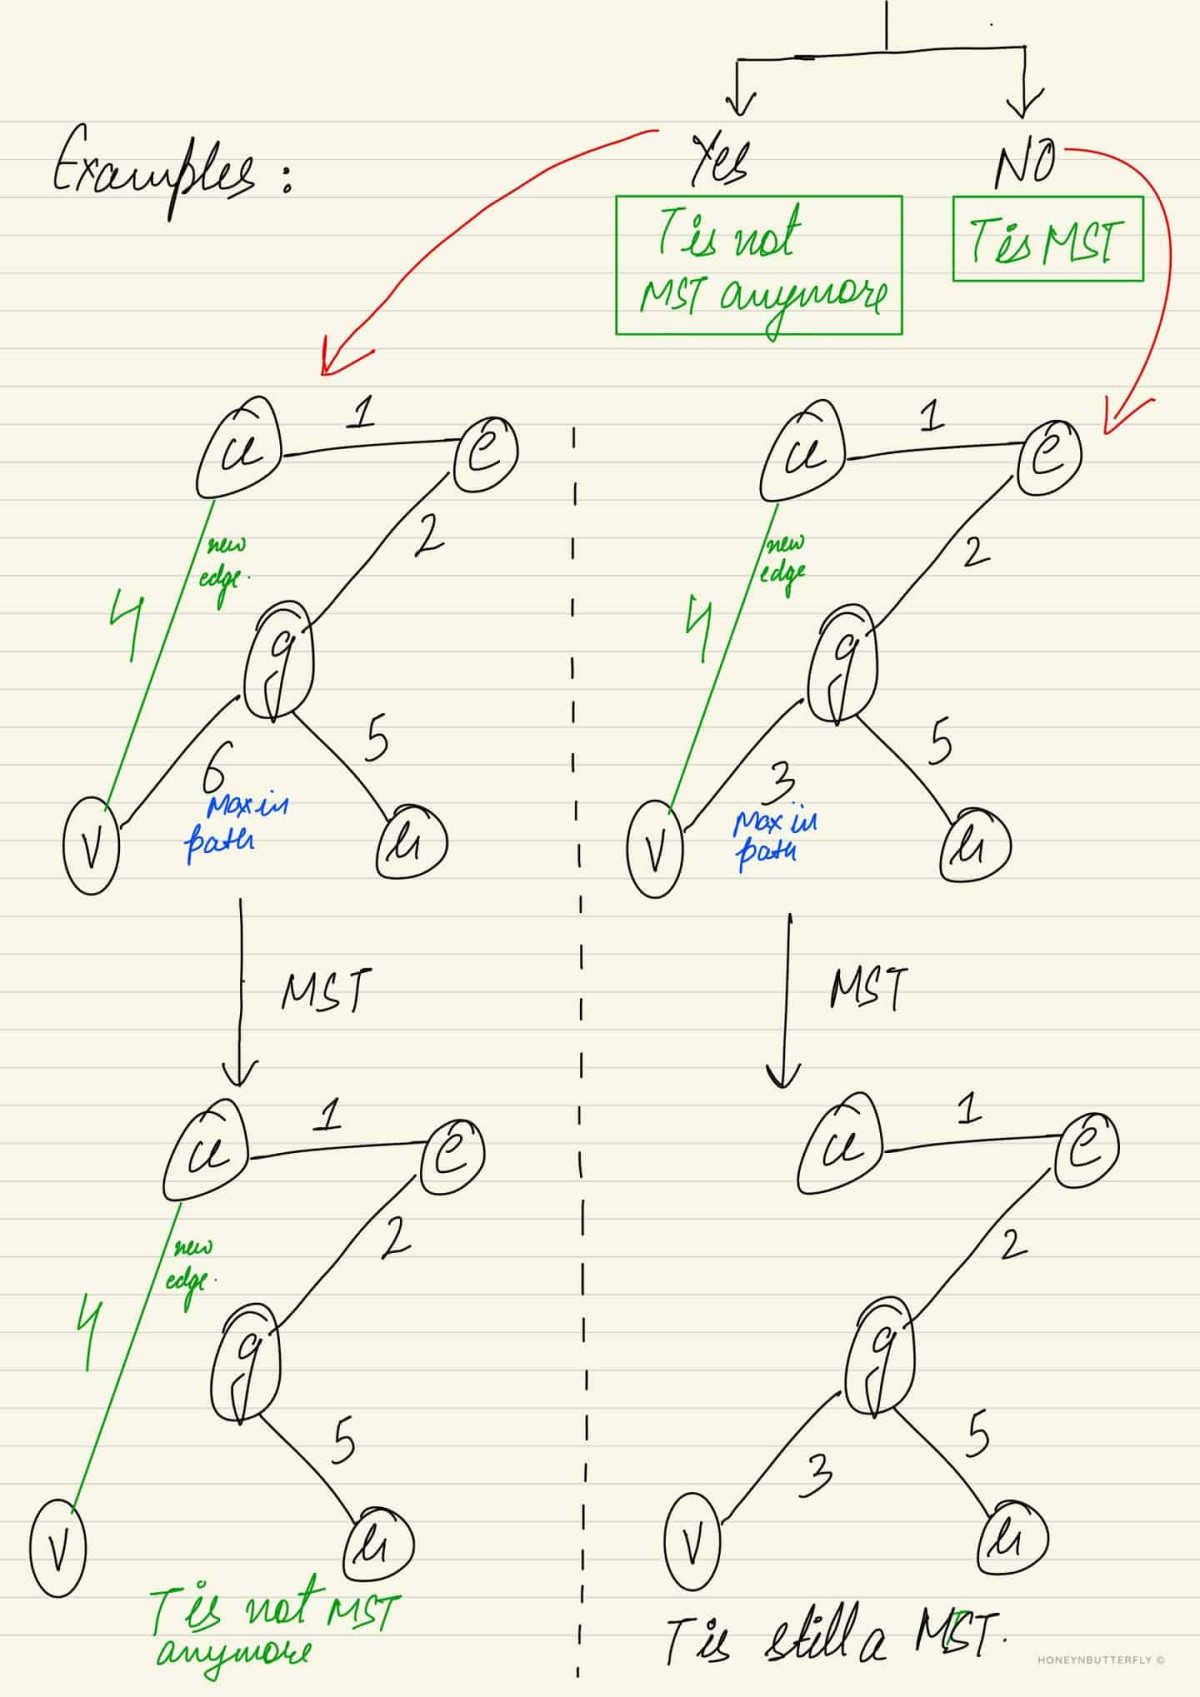 Yes
NO
Examples :
T is not
MST anymore
T is MST
1
u
e
new
edge.
2
4
g
6
5
Max in
path
v
h
1
u
e
new
edge
2
4
g
3
5
Max in
path
v
h
MST
MST
1
u
e
new
edge.
2
4
g
5
v
h
T is not MST
anymore
1
u
e
2
g
3
5
v
h
T is still a MST.
HONEYNBUTTERFLY ©